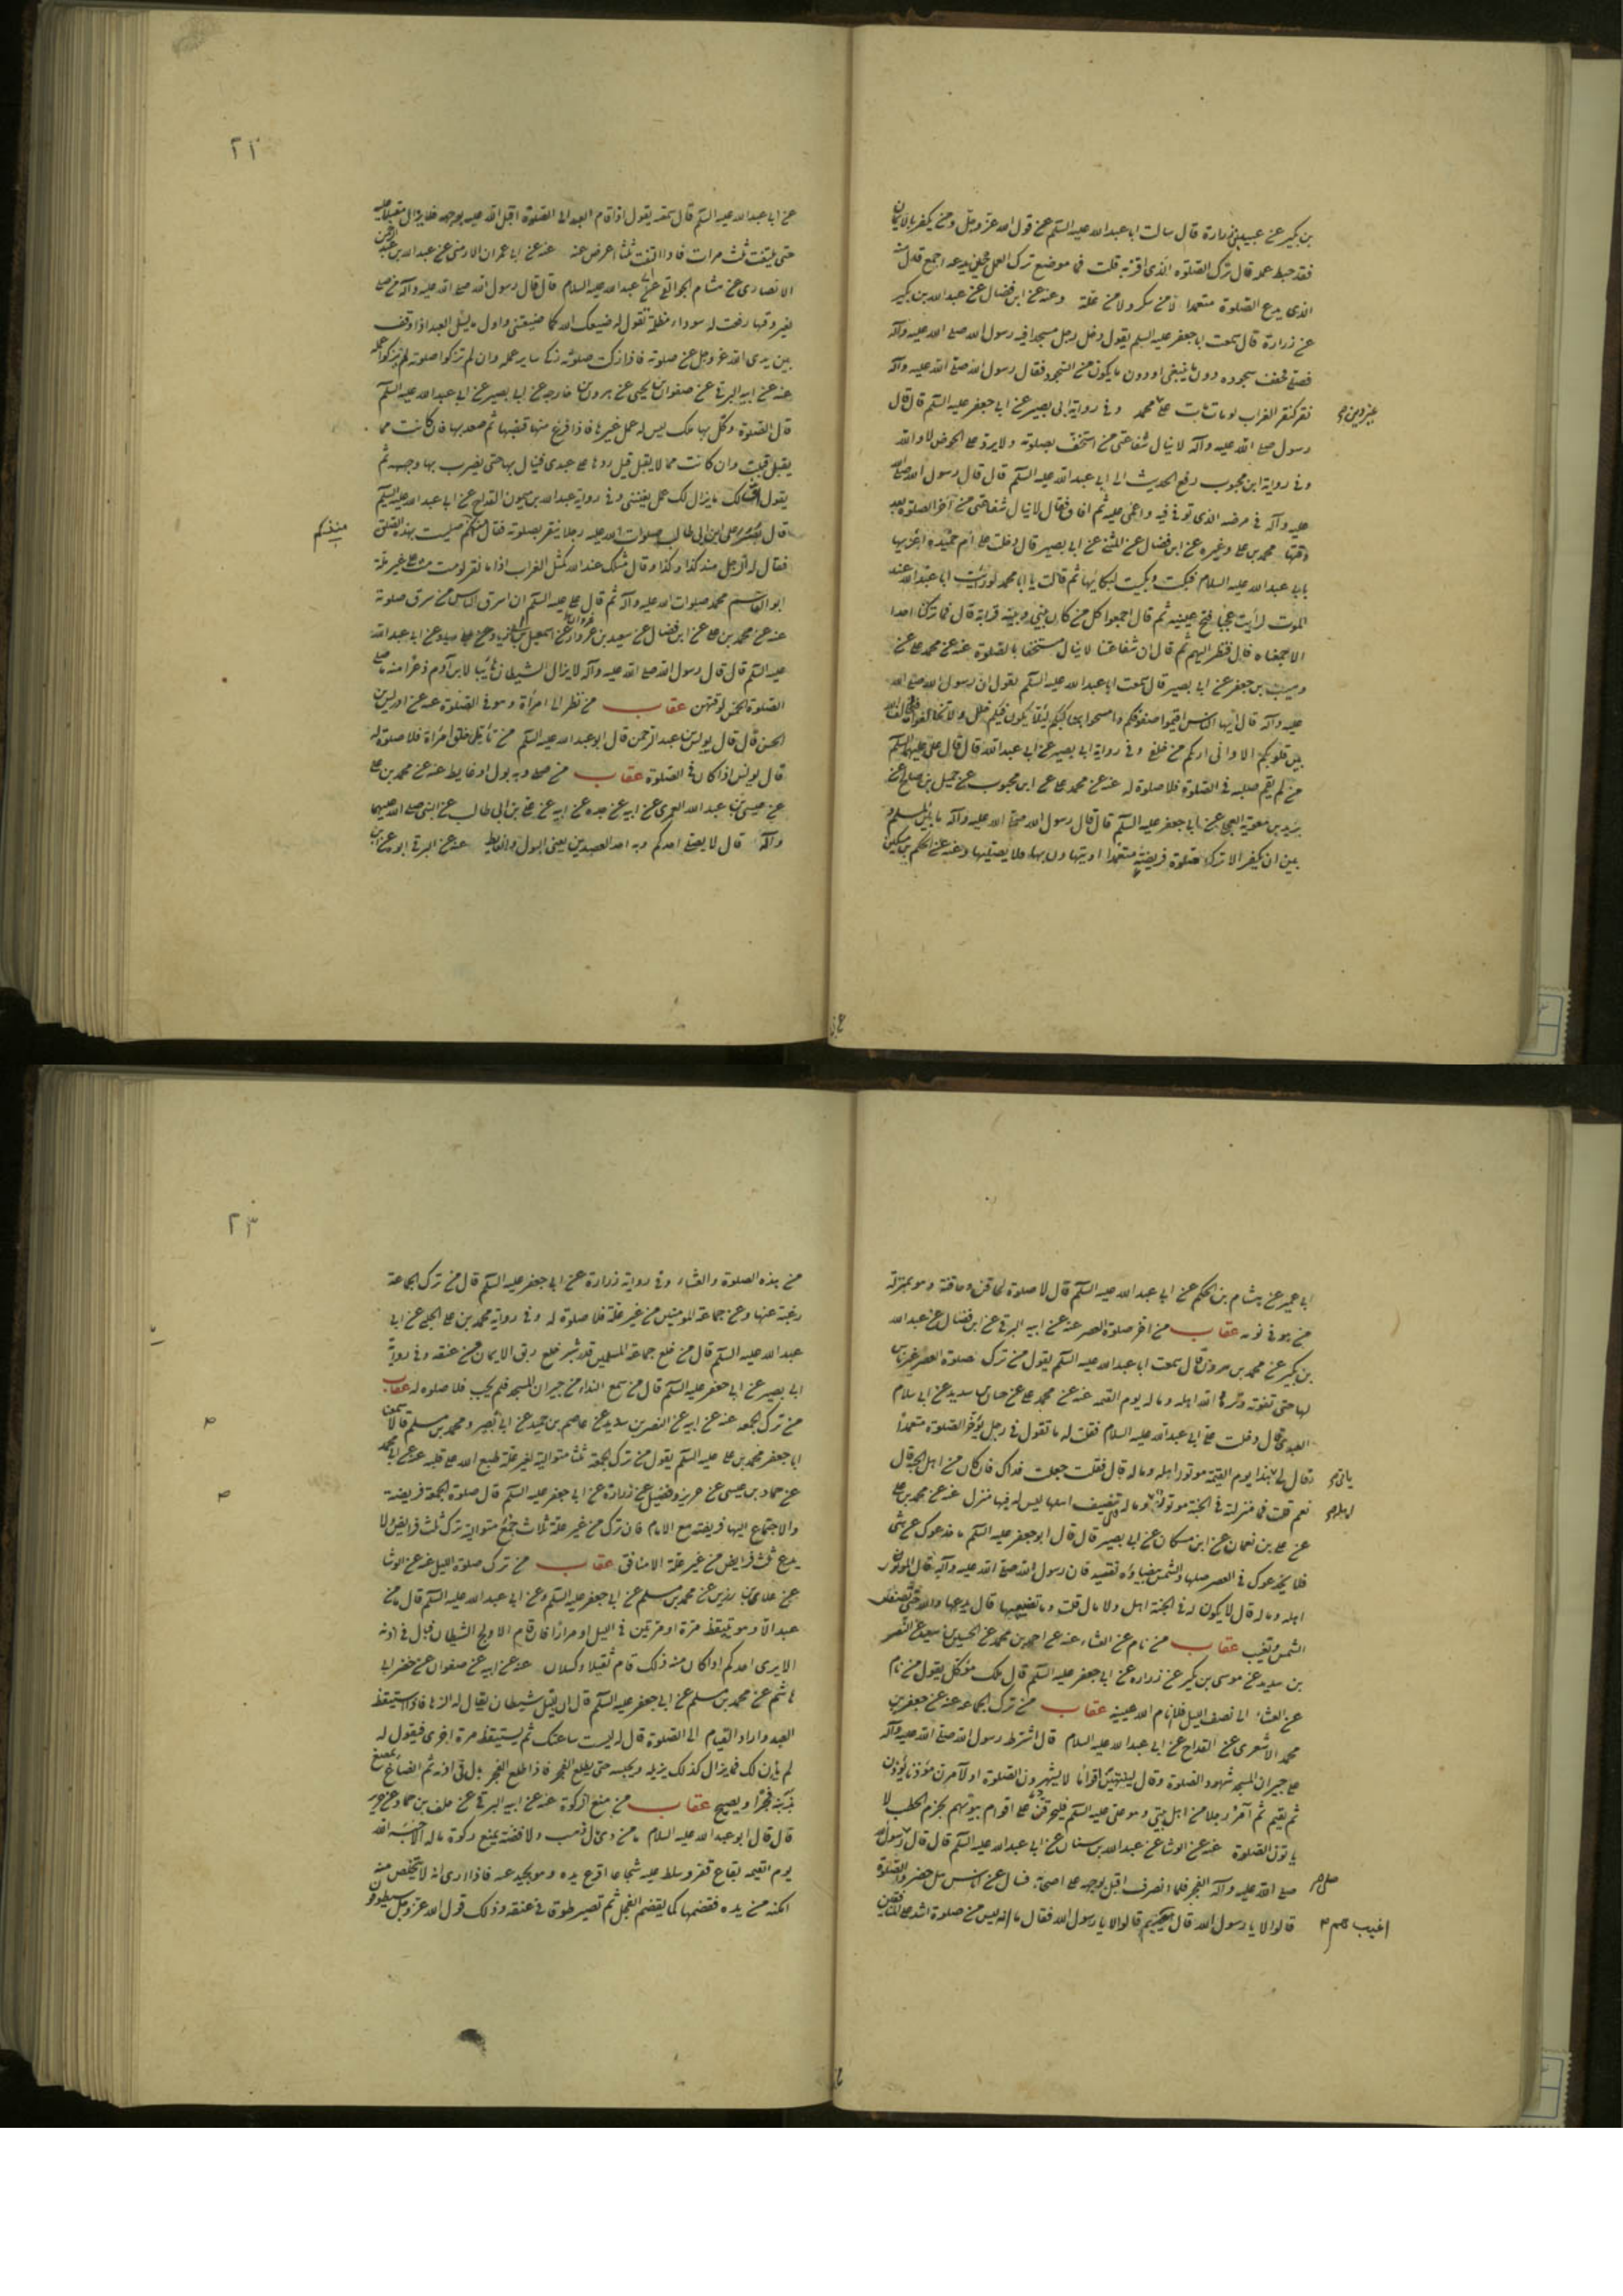 بن بكير عن عبيد بن زرارة قال سالت ابا عبد الله عليه السلم عن قول الله عز وجل ومن يكفر بالايمان
فقد حبط عمله قال ترك الصلوة الذى اقر به قلت فما موضع ترك العمل حتى يدعه اجمع قال منه
الذى يدع الصلوة متعمدا لا من سكر ولا من علة وعنه عن ابن فضال عن عبد الله بن بكير
عن زرارة قال سمعت ابا جعفر عليه السلم يقول دخل رجل مسجدا فيه رسول الله صلى الله عليه وآله
فصلى فخفف سجوده دون ما ينبغى او دون ما يكون من السجود فقال رسول الله صلى الله عليه وآله
نقر كنقر الغراب لو مات مات على غير دين محمد وفى رواية ابى بصير عن ابى جعفر عليه السلم قال قال
رسول الله صلى الله عليه وآله لا ينال شفاعتى من استخف بصلوته ولا يرد على الحوض لا والله
وفى رواية ابن محبوب رفع الحديث الى ابى عبد الله عليه السلم قال قال رسول الله صلى الله
عليه وآله فى مرضه الذى توفى فيه واغمى عليه ثم افاق فقال لا ينال شفاعتى من اخر الصلوة بعد
وقتها محمد بن على وغيره عن ابن فضال عن المثنى عن ابى بصير قال دخلت على ام حميدة اعزيها
بابى عبد الله عليه السلام فبكت وبكيت لبكائها ثم قالت يا با محمد لو رايت ابا عبد الله عند
الموت لرأيت عجبا فتح عينيه ثم قال اجمعوا كل من كان بينى وبينه قرابة قال فما تركنا احدا
الا جمعناه قال فنظر اليهم ثم قال ان شفاعتنا لا ينال مستخفا بالصلوة عنه عن محمد بن على عن
وهيب بن جعفر عن ابى بصير قال سمعت ابا عبد الله عليه السلم يقول ان رسول الله صلى الله
عليه وآله قال ايها الناس اقيموا صفوفكم وامسحوا بمناكبكم لئلا يكون فيكم خلل ولا تخالفوا فيخالف الله
بين قلوبكم الا وانى اراكم من خلفى وفى رواية ابى بصير عن ابى عبد الله قال قال على عليهما السلم
من لم يقم صلبه فى الصلوة فلا صلوة له عنه عن محمد بن على عن ابن محبوب عن جميل بن صالح عن
بريد بن معوية العجلى عن ابى جعفر عليه السلم قال قال رسول الله صلى الله عليه وآله ما بين المسلم و
بين ان يكفر الا ترك صلوة فريضة متعمدا او يتهاون بها فلا يصليها وعنه عن الحكم بن مسكين
٢٢
عن ابى عبد الله عليه السلم قال سمعته يقول اذا قام العبد الى الصلوة اقبل الله عليه بوجهه فلا يزال مقبلا عليه
حتى يلتفت ثلث مرات فاذا التفت ثلثا اعرض عنه عنه عن ابى عمران الارمنى عن عبد الله بن عبد الرحمن
الانصارى عن هشام الجواليقى عن ابى عبد الله عليه السلام قال قال رسول الله صلى الله عليه وآله من صلى
لغير وقتها رفعت له سوداء مظلمة تقول له ضيعك الله كما ضيعتنى واول ما يسئل العبد اذا وقف
بين يدى الله عز وجل عن صلوته فاذا زكت صلوته زكا ساير عمله وان لم تزكوا صلوته لم يزكوا عمله
عنه عن ابيه البرقى عن صفوان بن يحيى عن هرون بن خارجه عن ابى بصير عن ابى عبد الله عليه السلم
قال الصلوة وكل بها ملك ليس له عمل غيرها فاذا فرغ منها قبضها ثم صعد بها فان كانت مما
يقبل قبلت وان كانت مما لا يقبل قيل ردها على عبدى فينزل بها حتى يضرب بها وجهه ثم
يقول اف لك ما يزال لك عمل يعنينى وفى رواية عبد الله بن ميمون القداح عن ابى عبد الله عليه السلم
قال ابصر على بن ابى طالب صلوات الله عليه رجلا ينقر بصلوته فقال منذ كم صليت بهذه الصلوة
منذ كم
فقال له الرجل منذ كذا وكذا وقال مثلك عند الله كمثل الغراب اذا ما نقر لو مت مت على غير ملة
ابو القاسم محمد صلوات الله عليه وآله ثم قال على عليه السلم ان اسرق الناس من سرق صلوته
عليه السلم قال قال رسول الله صلى الله عليه وآله لا يزال الشيطان هائبا لابن آدم ذعرا منه ما صلى
الصلوة الخمس لوقتهن عقاب من نظر الى امرأة وهو فى الصلوة عنه عن ادريس بن
الحسن قال قال يونس بن عبد الرحمن قال ابو عبد الله عليه السلم من تأمل خلق امراة فلا صلوة له
قال يونس اذا كان فى الصلوة عقاب من صلى وبه بول او غايط عنه عن محمد بن على
عن عيسى بن عبد الله العمرى عن ابيه عن جده عن ابيه عن على بن ابى طالب عن النبى صلى الله عليهما
وآله قال لا يصلى احدكم وبه احد العصرين يعنى البول والغايط عنه عن البرقى ابو عن ابن
ابى عمير عن هشام بن الحكم عن ابى عبد الله عليه السلم قال لا صلوة لحاقن وحاقنة وهو بمنزلة
من هو فى ثوبه عقاب من اخر صلوة العصر عنه عن ابيه البرقى عن ابن فضال عن عبد الله
بن بكير عن محمد بن هرون قال سمعت ابا عبد الله عليه السلم يقول من ترك صلوة العصر غير ناس
لها حتى تفوته وتره الله اهله وماله يوم القيمة عنه عن محمد بن على عن حنان بن سدير عن ابى سلام
العبدى قال دخلت على ابى عبد الله عليه السلام فقلت له ما تقول فى رجل يؤخر الصلوة متعمدا
قال ياتى هذا يوم القيمة موتورا اهله وماله قال فقلت جعلت فداك فان كان من اهل الجنة قال
نعم قلت فما منزلته فى الجنة موتورا اهله وماله قال يتضيف اهلها ليس له فيها منزل عنه عن محمد بن على
عن على بن نعمان عن ابن مسكان عن ابى بصير قال قال ابو جعفر عليه السلم ما خدعوك عن شى
فلا يخدعوك فى العصر صلها والشمس بيضاء نقية فان رسول الله صلى الله عليه وآله قال الموتور
اهله وماله قال لا يكون له فى الجنة اهل ولا مال قلت وما تضييعها قال يدعها والله حتى تصفر
الشمس وتغيب عقاب من نام عن العشاء عنه عن احمد بن محمد عن الحسين بن سعيد عن النضر
بن سويد عن موسى بن بكير عن زراره عن ابى جعفر عليه السلم قال ملك موكل يقول من نام
عن العشاء الى نصف الليل فلا انام الله عينيه عقاب من ترك الجماعة عنه عن جعفر بن
محمد الاشعرى عن القداح عن ابى عبد الله عليه السلام قال اشترط رسول الله صلى الله عليه وآله
على جيران المسجد شهود الصلوة وقال لينتهين اقواما لا يشهدون الصلوة او لآمرن مؤذنا يؤذن
ثم يقيم ثم آمر رجلا من اهل بيتى وهو على عليه السلم فليحرقن على اقوام بيوتهم بحزم الحطب لا
ياتون الصلوة عنه عن الوشا عن عبد الله بن سنان عن ابى عبد الله عليه السلم قال قال رسول الله
صلى الله عليه وآله الفجر فلما انصرف اقبل بوجهه على اصحابه فسال عن اناس هل حضروا الصلوة
قالوا لا يا رسول الله قال اغيب هم قالوا لا يا رسول الله فقال اما انه ليس من صلوة اشد على المنافقين
اغيب هم
٢٣
من هذه الصلوة والعشاء وفى رواية زرارة عن ابى جعفر عليه السلم قال من ترك الجماعة
رغبة عنها وعن جماعة المومنين من غير علة فلا صلوة له وفى رواية محمد بن على الحلبى عن ابى
عبد الله عليه السلم قال من خلع جماعة المسلمين قدر شبر خلع ربق الايمان من عنقه وفى رواية
ابى بصير عن ابى جعفر عليه السلم قال من سمع النداء من جيران المسجد فلم يجب فلا صلوة له عقاب
من ترك الجمعه عنه عن ابيه عن النضر بن سويد عن عاصم بن حميد عن ابى بصير ومحمد بن مسلم قالا سمعنا
ابا جعفر محمد بن على عليه السلم يقول من ترك الجمعة ثلثا متوالية لغير علة طبع الله على قلبه عنه عن ابى محمد
عن حماد بن عيسى عن حريز وفضيل عن زرارة عن ابى جعفر عليه السلم قال صلوة الجمعة فريضة
والاجتماع اليها فريضة مع الامام فان ترك من غير علة ثلاث جمع متوالية ترك ثلث فرايض ولا
يدع ثلث فرايض من غير علة الا منافق عقاب من ترك صلوة الليل عنه عن الوشا
عن علاء بن رزين عن محمد بن مسلم عن ابى جعفر عليه السلم وعن ابى عبد الله عليه السلم قال ما من
عبد الا وهو يتيقظ مرة او مرتين فى الليل او مرارا فان قام الا وفحج الشيطان فبال فى اذنه
الا يرى احدكم اذا كان منه ذلك قام ثقيلا وكسلان عنه عن ابيه عن صفوان عن خضر ابى
هاشم عن محمد بن مسلم عن ابى جعفر عليه السلم قال ان لليل شيطان يقال له الزها فاذا استيقظ
العبد واراد القيام الى الصلوة قال له ليست ساعتك ثم يستيقظ مرة اخرى فيقول له
لم يان لك فما يزال كذلك يزيله ويحبسه حتى يطلع الفجر فاذا طلع الفجر بال فى اذنه ثم انصاع يمصع
بذنبه فخرا ويصيح عقاب من منع الزكوة عنه عن ابيه البرقى عن خلف بن حماد عن حريز
قال قال ابو عبد الله عليه السلام ما من ذى مال ذهب ولا فضة يمنع زكوة ماله الا حبسه الله
يوم القيمة بقاع قفر وسلط عليه شجاعا اقرع يريده وهو يحيد عنه فاذا راى انه لا يتخلص منه
امكنه من يده فقضمها كما يقضم الفجل ثم تصير طوقا فى عنقه وذلك قول الله عز وجل سيطوقون